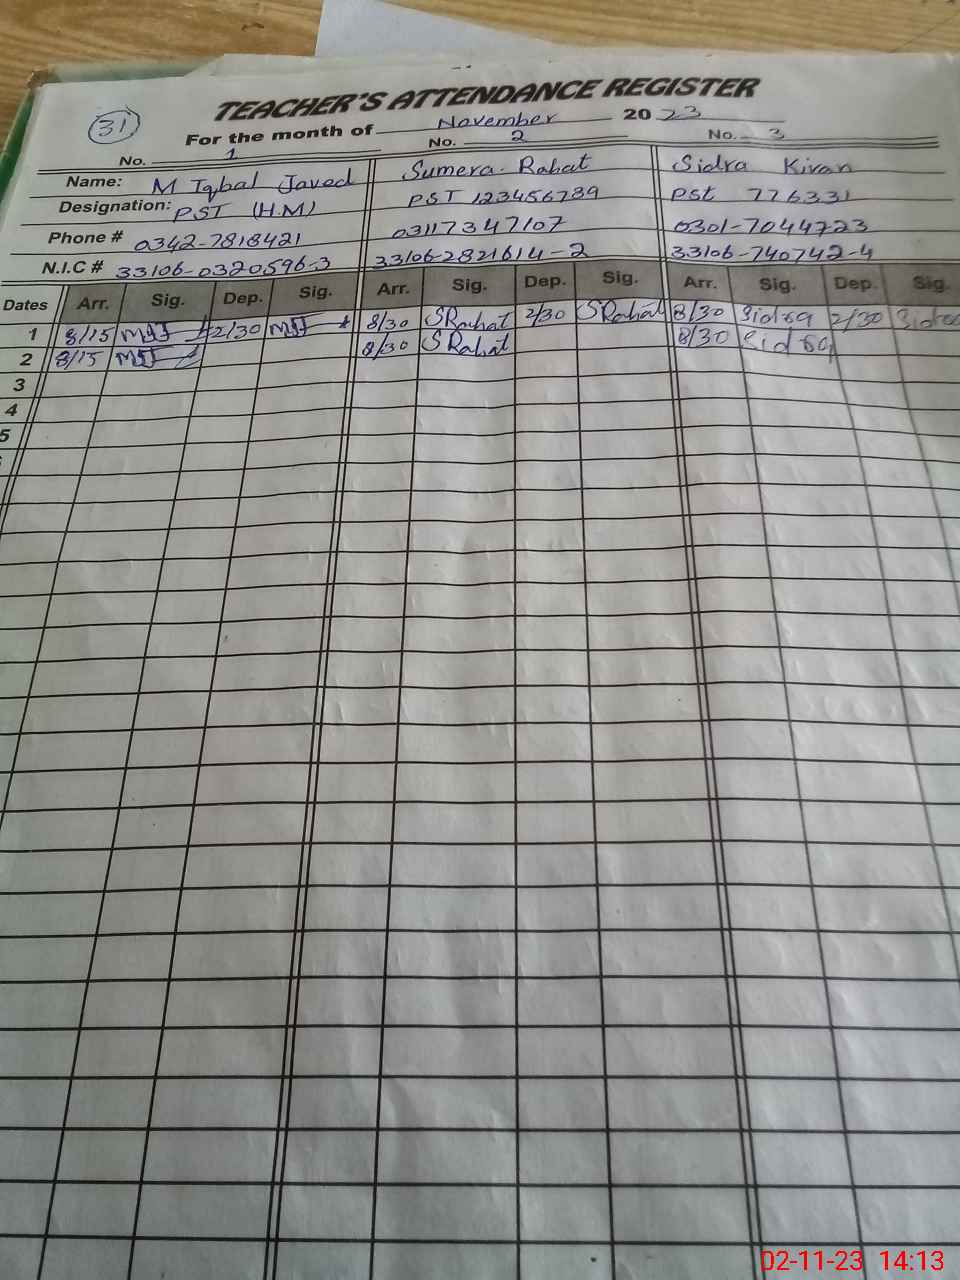 TEACHER'S ATTENDANCE REGISTER
31
For the month of November 2023
No. 1 No. 2 No. 3
Name: M Iqbal Javed Sumera Rahat Sidra Kiran
Designation: PST (H.M) PST 123456789 PST 776331
Phone # 0342-7818421 03117347107 0301-7044723
N.I.C # 33106-0320596-3 33106-2821614-2 33106-740742-4
Dates Arr. Sig. Dep. Sig. Arr. Sig. Dep. Sig. Arr. Sig. Dep. Sig.
1 8/15 MIJ 2/30 MIJ 8/30 SRahat 2/30 SRahat 8/30 Sidra 2/30 Sidra
2 8/15 MIJ 8/30 SRahat 8/30 Sidra
3
4
5
02-11-23 14:13